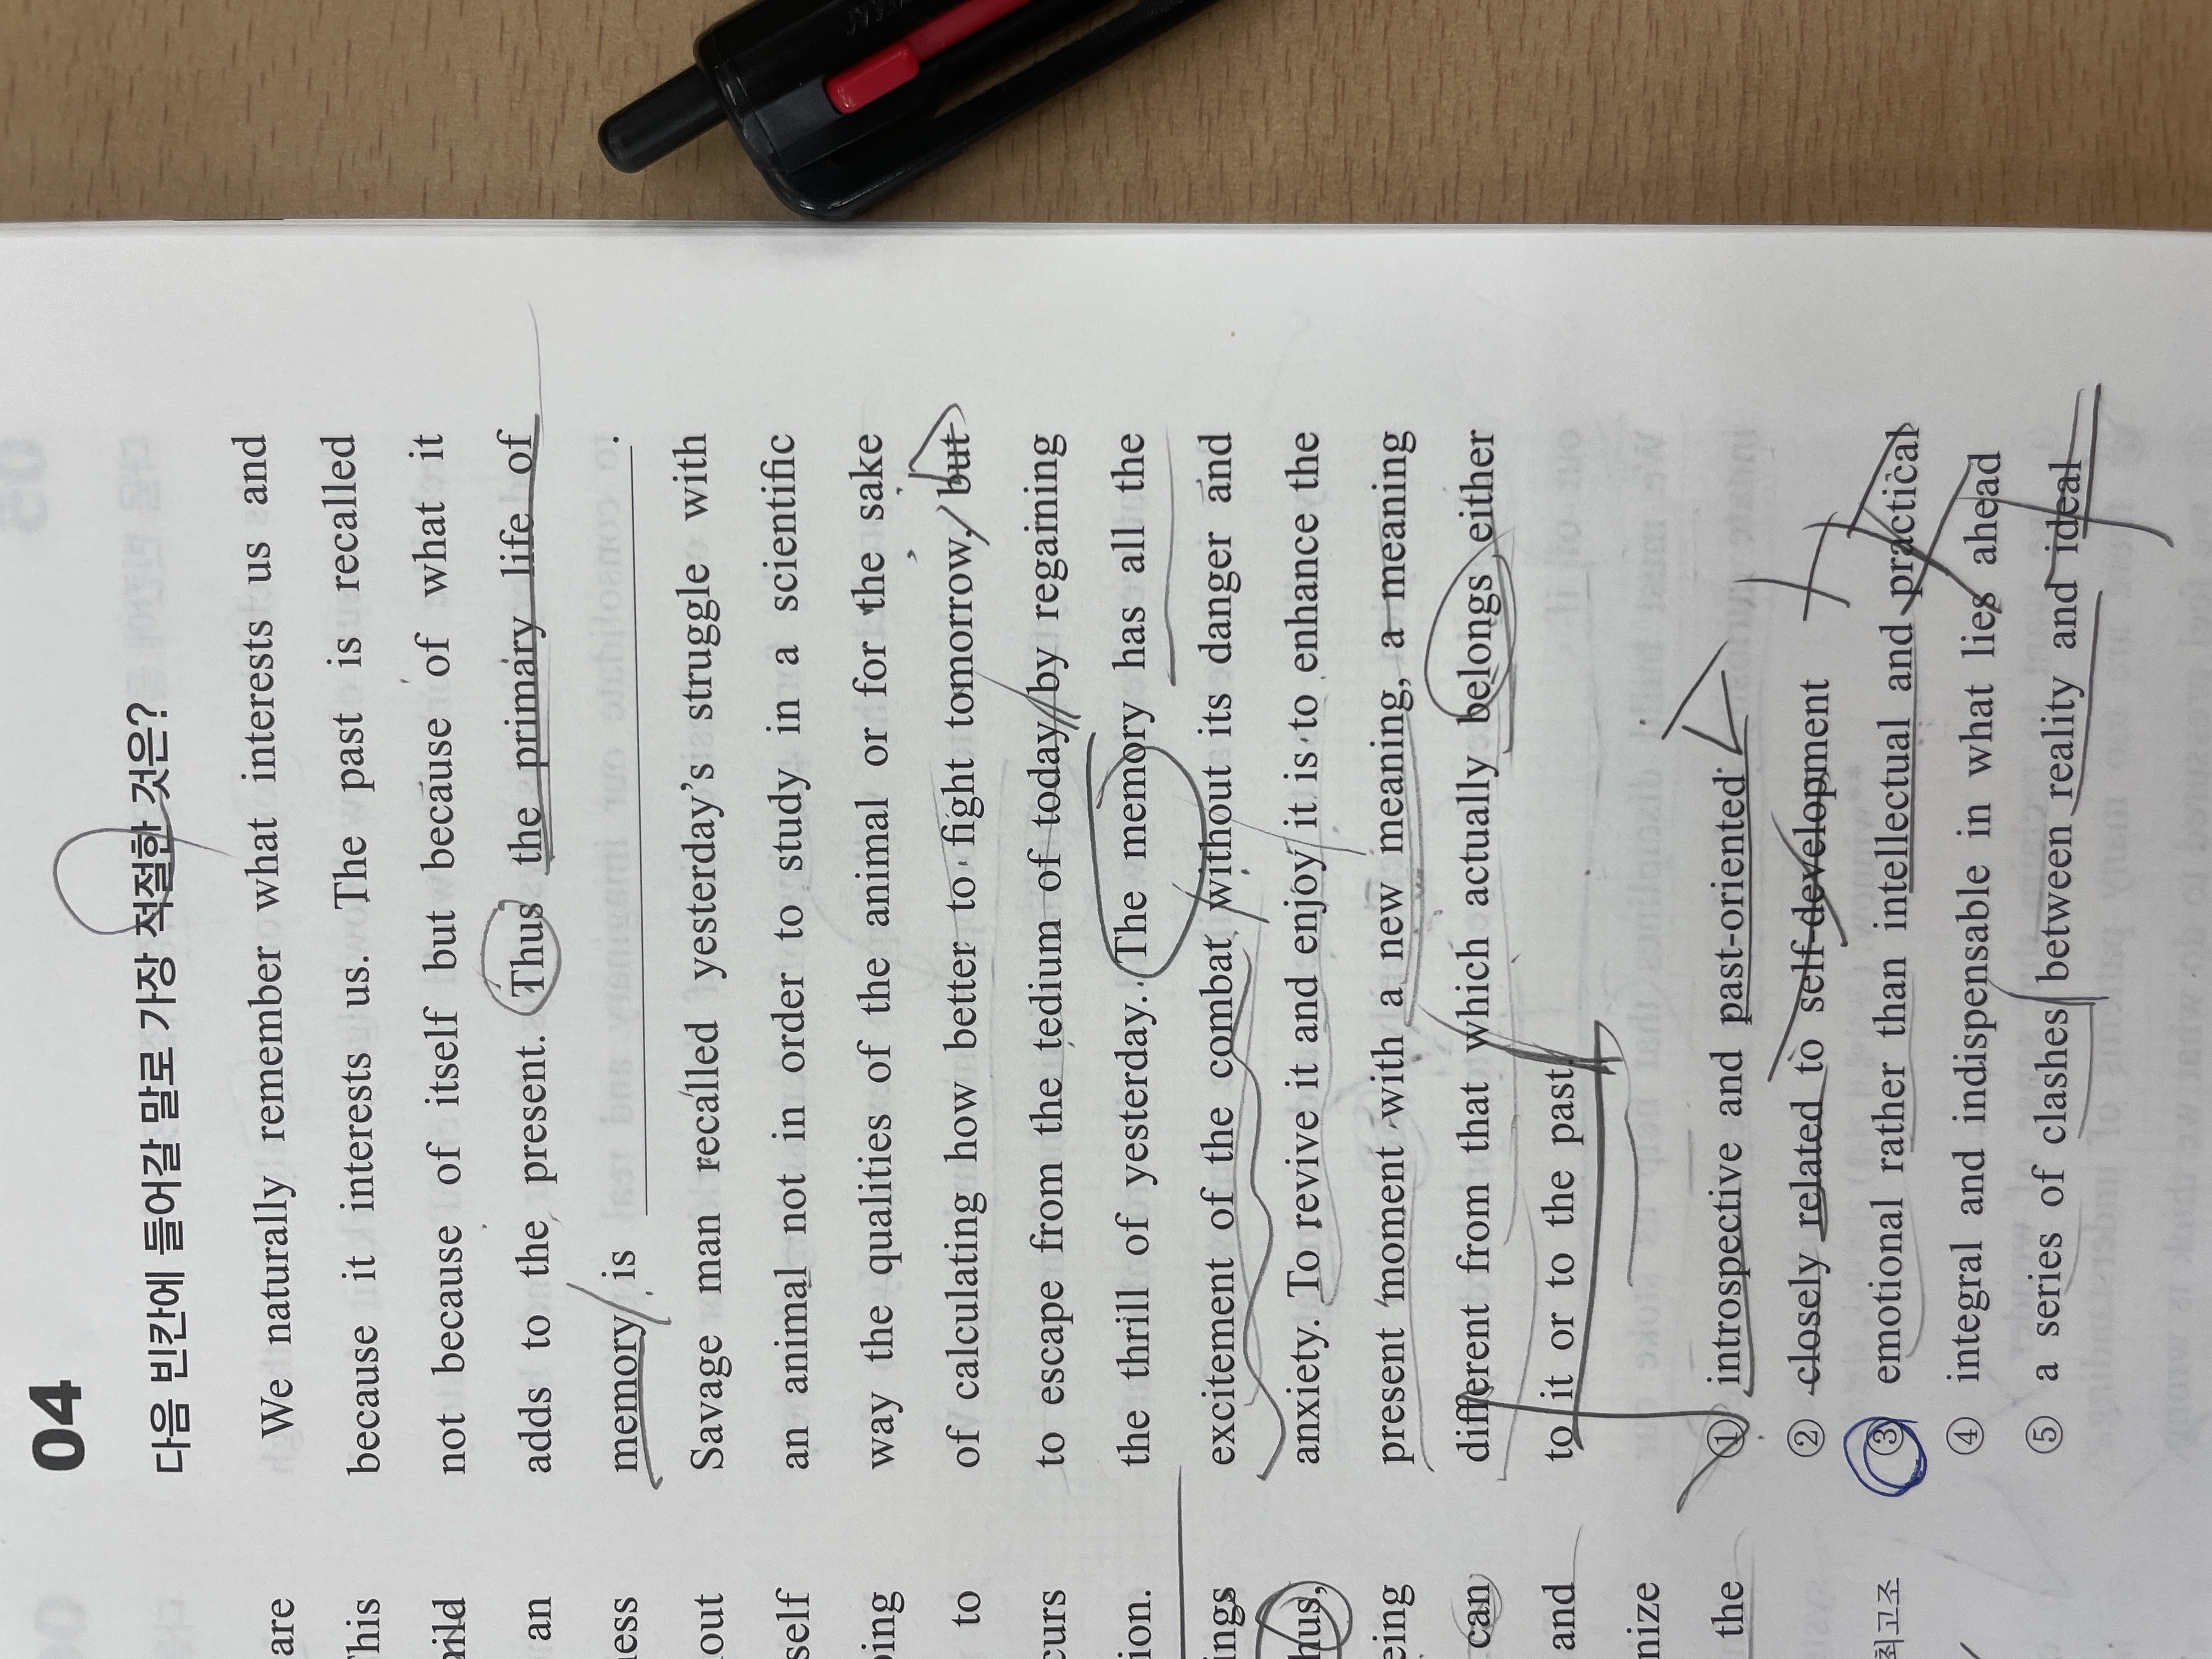 04
다음 빈칸에 들어갈 말로 가장 적절한 것은?
We naturally remember what interests us and
because it interests us. The past is recalled
not because of itself but because of what it
adds to the present. Thus the primary life of
memory is ____________.
Savage man recalled yesterday's struggle with
an animal not in order to study in a scientific
way the qualities of the animal or for the sake
of calculating how better to fight tomorrow, but
to escape from the tedium of today by regaining
the thrill of yesterday. The memory has all the
excitement of the combat without its danger and
anxiety. To revive it and enjoy it is to enhance the
present moment with a new meaning, a meaning
different from that which actually belongs either
to it or to the past.
① introspective and past-oriented
② closely related to self-development
③ emotional rather than intellectual and practical
④ integral and indispensable in what lies ahead
⑤ a series of clashes between reality and ideal
are
an
to
can
and
the
최고조